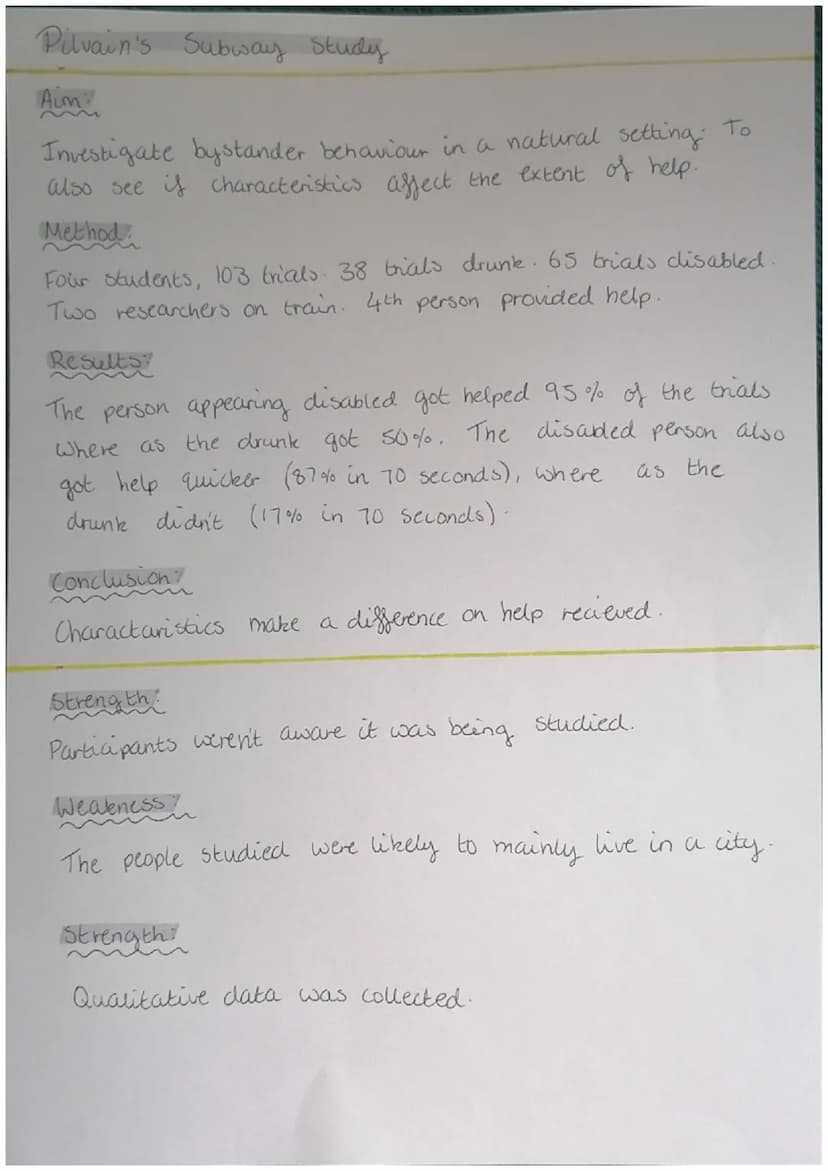 Pilvain's Subway Study
Aim:
Investigate bystander behaviour in a natural setting. To
also see if characteristics affect the extent of help.
Method:
Four students, 103 trials. 38 trials drunk. 65 trials disabled.
Two researchers on train. 4th person provided help.
Results:
The person appearing disabled got helped 95% of the trials
where as the drunk got 50%. The disabled person also
got help quicker (87% in 70 seconds), where as the
drunk didn't (17% in 70 seconds).
Conclusion:
Charactaristics make a difference on help recieved.
Strength:
Participants weren't aware it was being studied.
Weakness:
The people studied were likely to mainly live in a city.
Strength:
Qualitative data was collected.